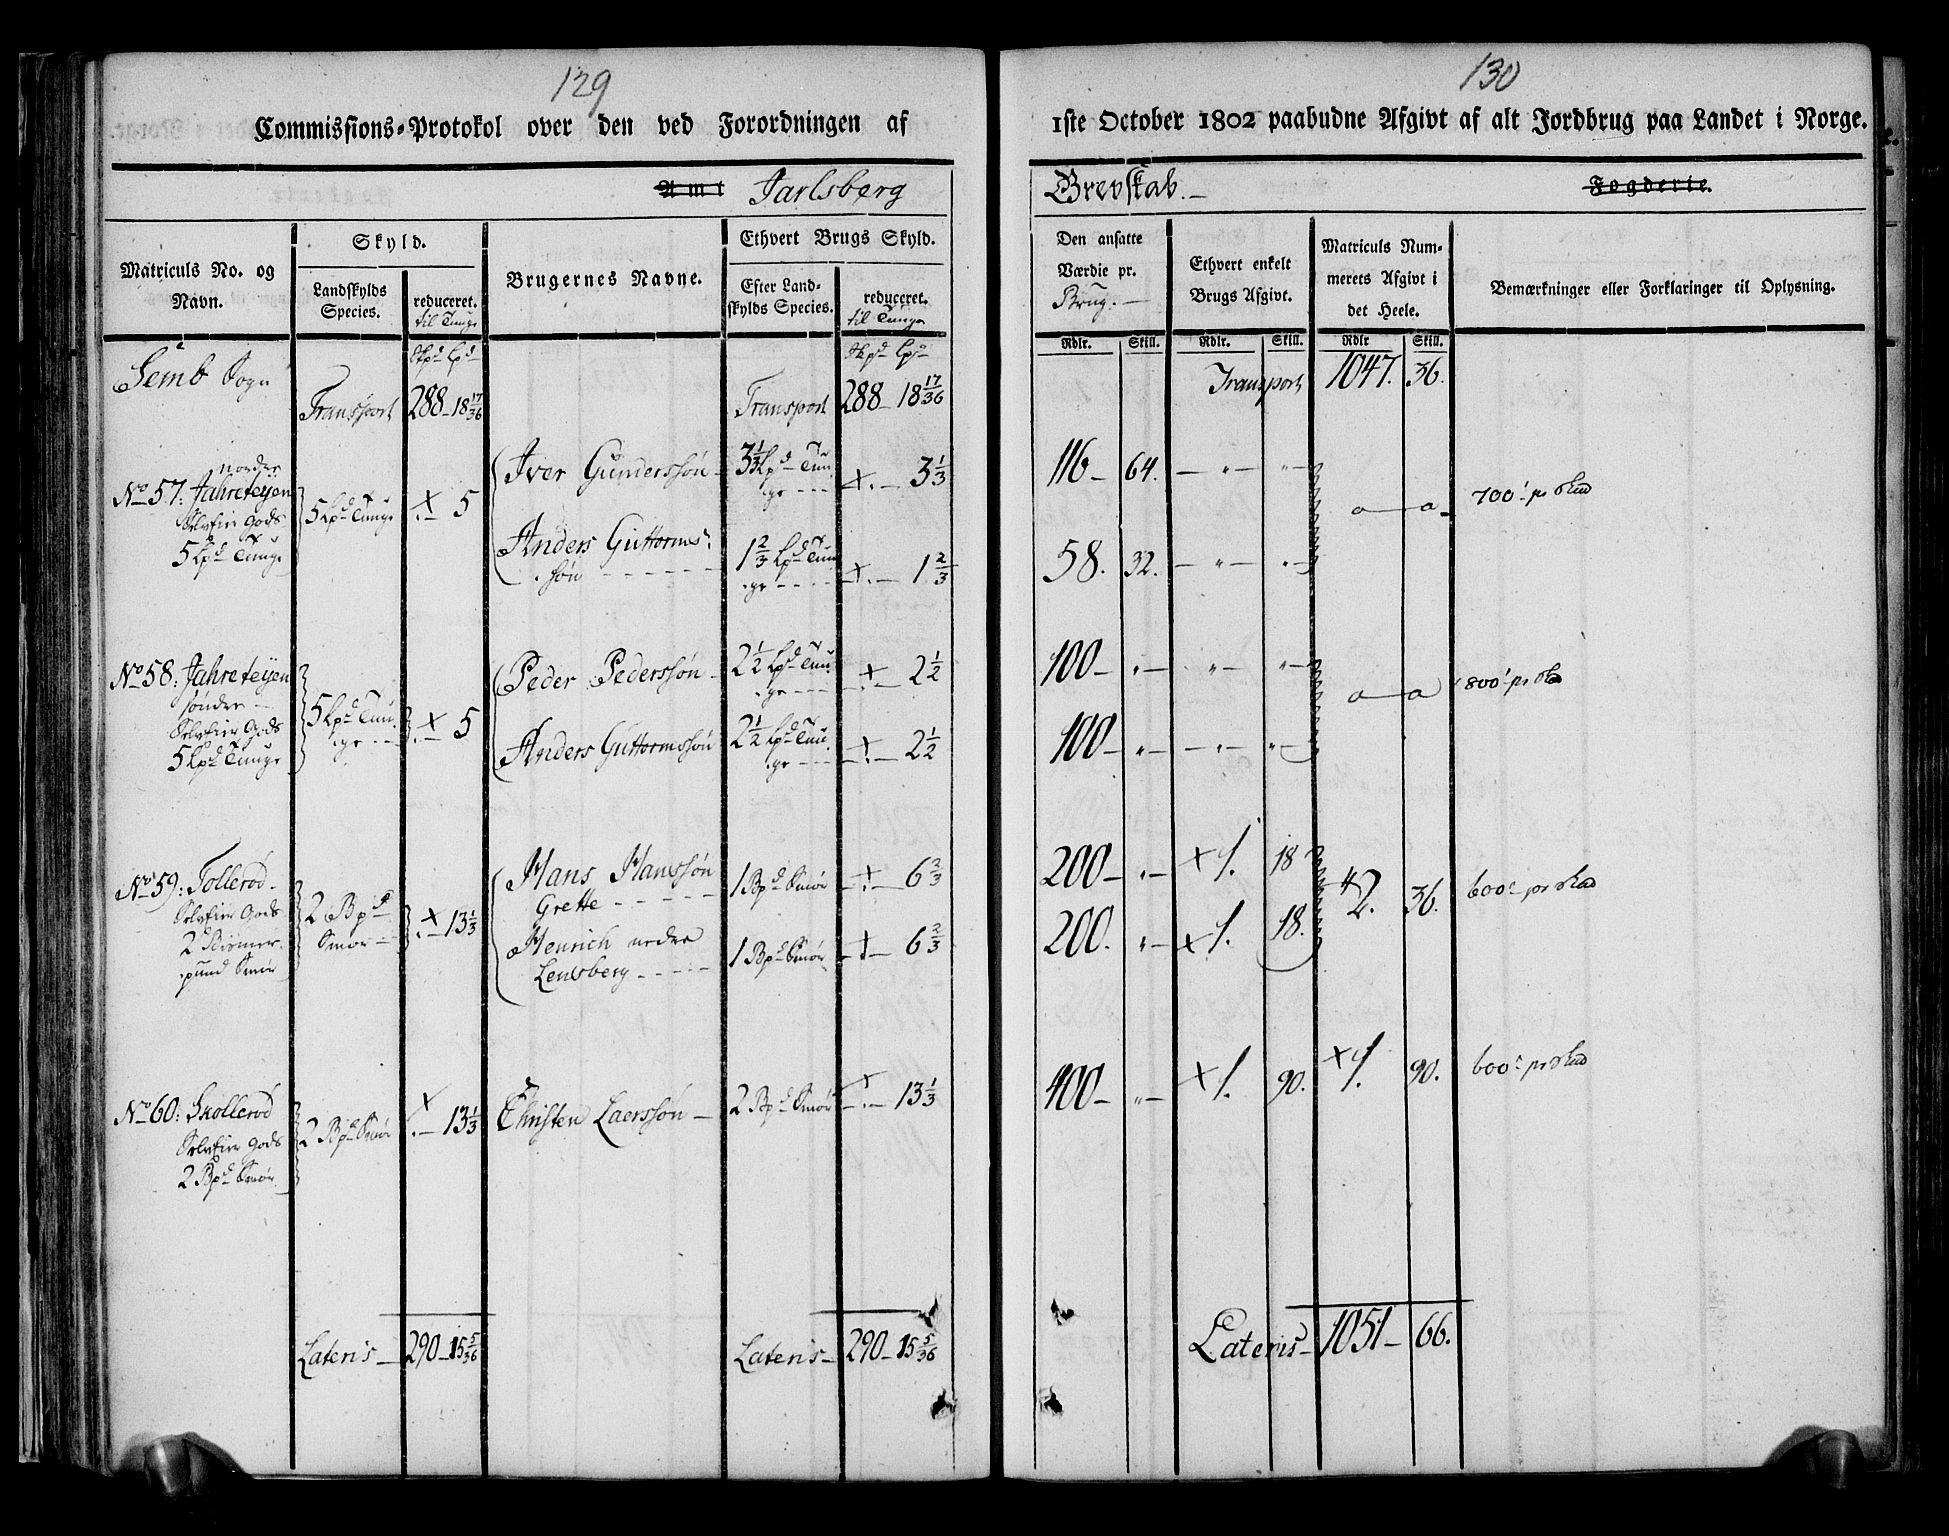 129
Commissions=Protokol over den ved Forordningen af
Amt Jarlsberg
Matriculs No. og Navn.
Skyld.
Landskylds Species.
reduceret. til Tunge
Brugernes Navne.
Ethvert Brugs Skyld.
Efter Landskylds Species.
reduceret. til Tunge
Semb Sogn
Skpd Lpd
Skpd Lpd
Transport 288 - 18 17/36
Transport 288 - 18 17/36
No 57: Jahreteÿen nordre
Selveier Gods
5 Lpd Tunge
5 Lpd Tunge
5
Iver Gundersøn - 3 1/3 Lpd Tunge - 3 1/3
Anders Guttormssøn - 1 2/3 Lpd Tunge - 1 2/3
No 58: Jahreteÿen
søndre -
Selveier Gods
5 Lpd Tunge
5 Lpd Tunge
5
Peder Pederssøn - 2 1/2 Lpd Tunge - 2 1/2
Anders Guttormssøn 2 1/2 Lpd Tunge - 2 1/2
No 59: Tollerød -
Selveier Gods
2 Bismerpund Smør
2 Bpd Smør -
13 1/3
Hans Hanssøn Grette - 1 Bpd Smør - 6 2/3
Henrich nedre Lensberg - 1 Bpd Smør - 6 2/3
No 60: Skollerød
Selveier Gods
2 Bpd Smør
2 Bpd Smør
13 1/3
Christen Laerssøn - 2 Bpd Smør - 13 1/3
Lateris - 290 - 15 5/36
Lateris - 290 - 15 5/36
130
1ste October 1802 paabudne Afgivt af alt Jordbrug paa Landet i Norge.
Grevskab. -
Fogderie.
Den ansatte Værdie pr. Brug. -
Ethvert enkelt Brugs Afgivt.
Matriculs Nummerets Afgivt i det Heele.
Bemærkninger eller Forklaringer til Oplysning.
Rdlr. Skill. Rdlr. Skill. Rdlr Skill.
Transport 1047. 36.
116 - 64. - " - " -
58. 32. - " - " -
700 pr Skd
100 - " - " - " -
100 - " - - " - " -
800 pr Skd
200 - " - 1. 18
200. " - 1. 18.
2. 36.
600 pr Skd
400 - " - 1. 90. 1. 90.
600 pr Skd
Lateris - 1051 - 66.